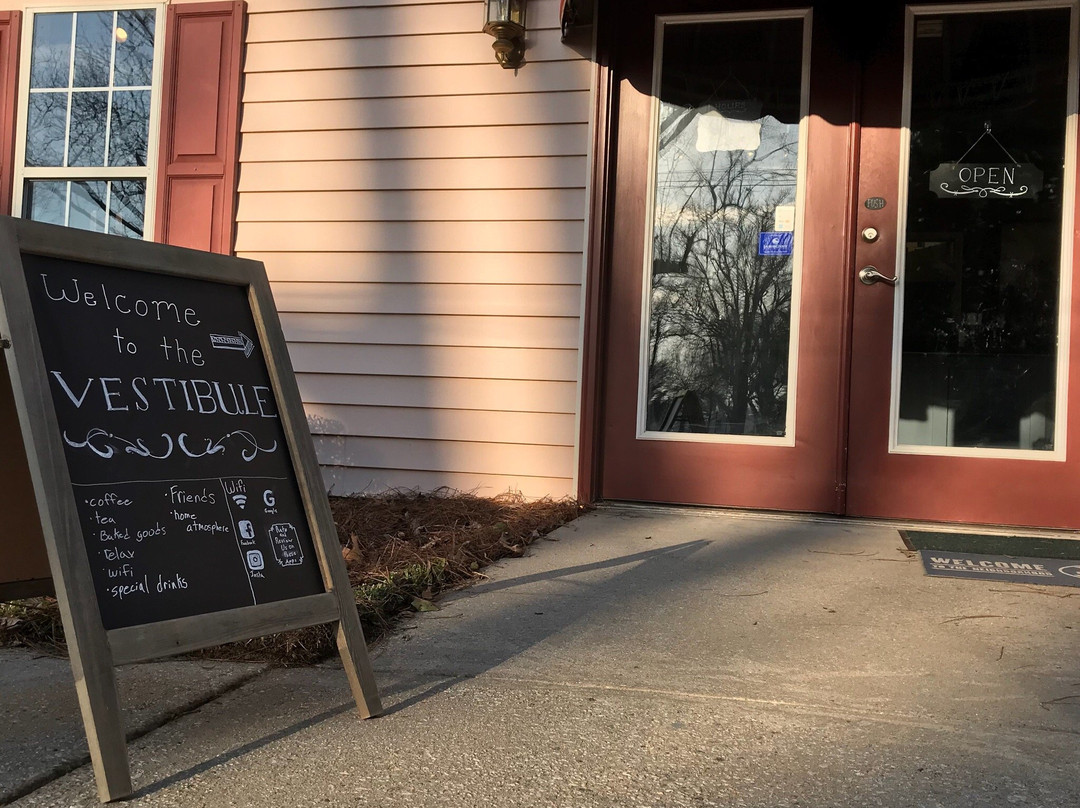 Welcome
to the
VESTIBULE
·coffee
·tea
·Baked goods
·relax
·wifi
·special drinks
·Friends
·home
atmosphere
Wifi
G
Google
f
Facebook
Insta
Rate
and
Review
Us on
These
Apps
OPEN
PUSH
WELCOME
TO THE NEIGHBORHOOD